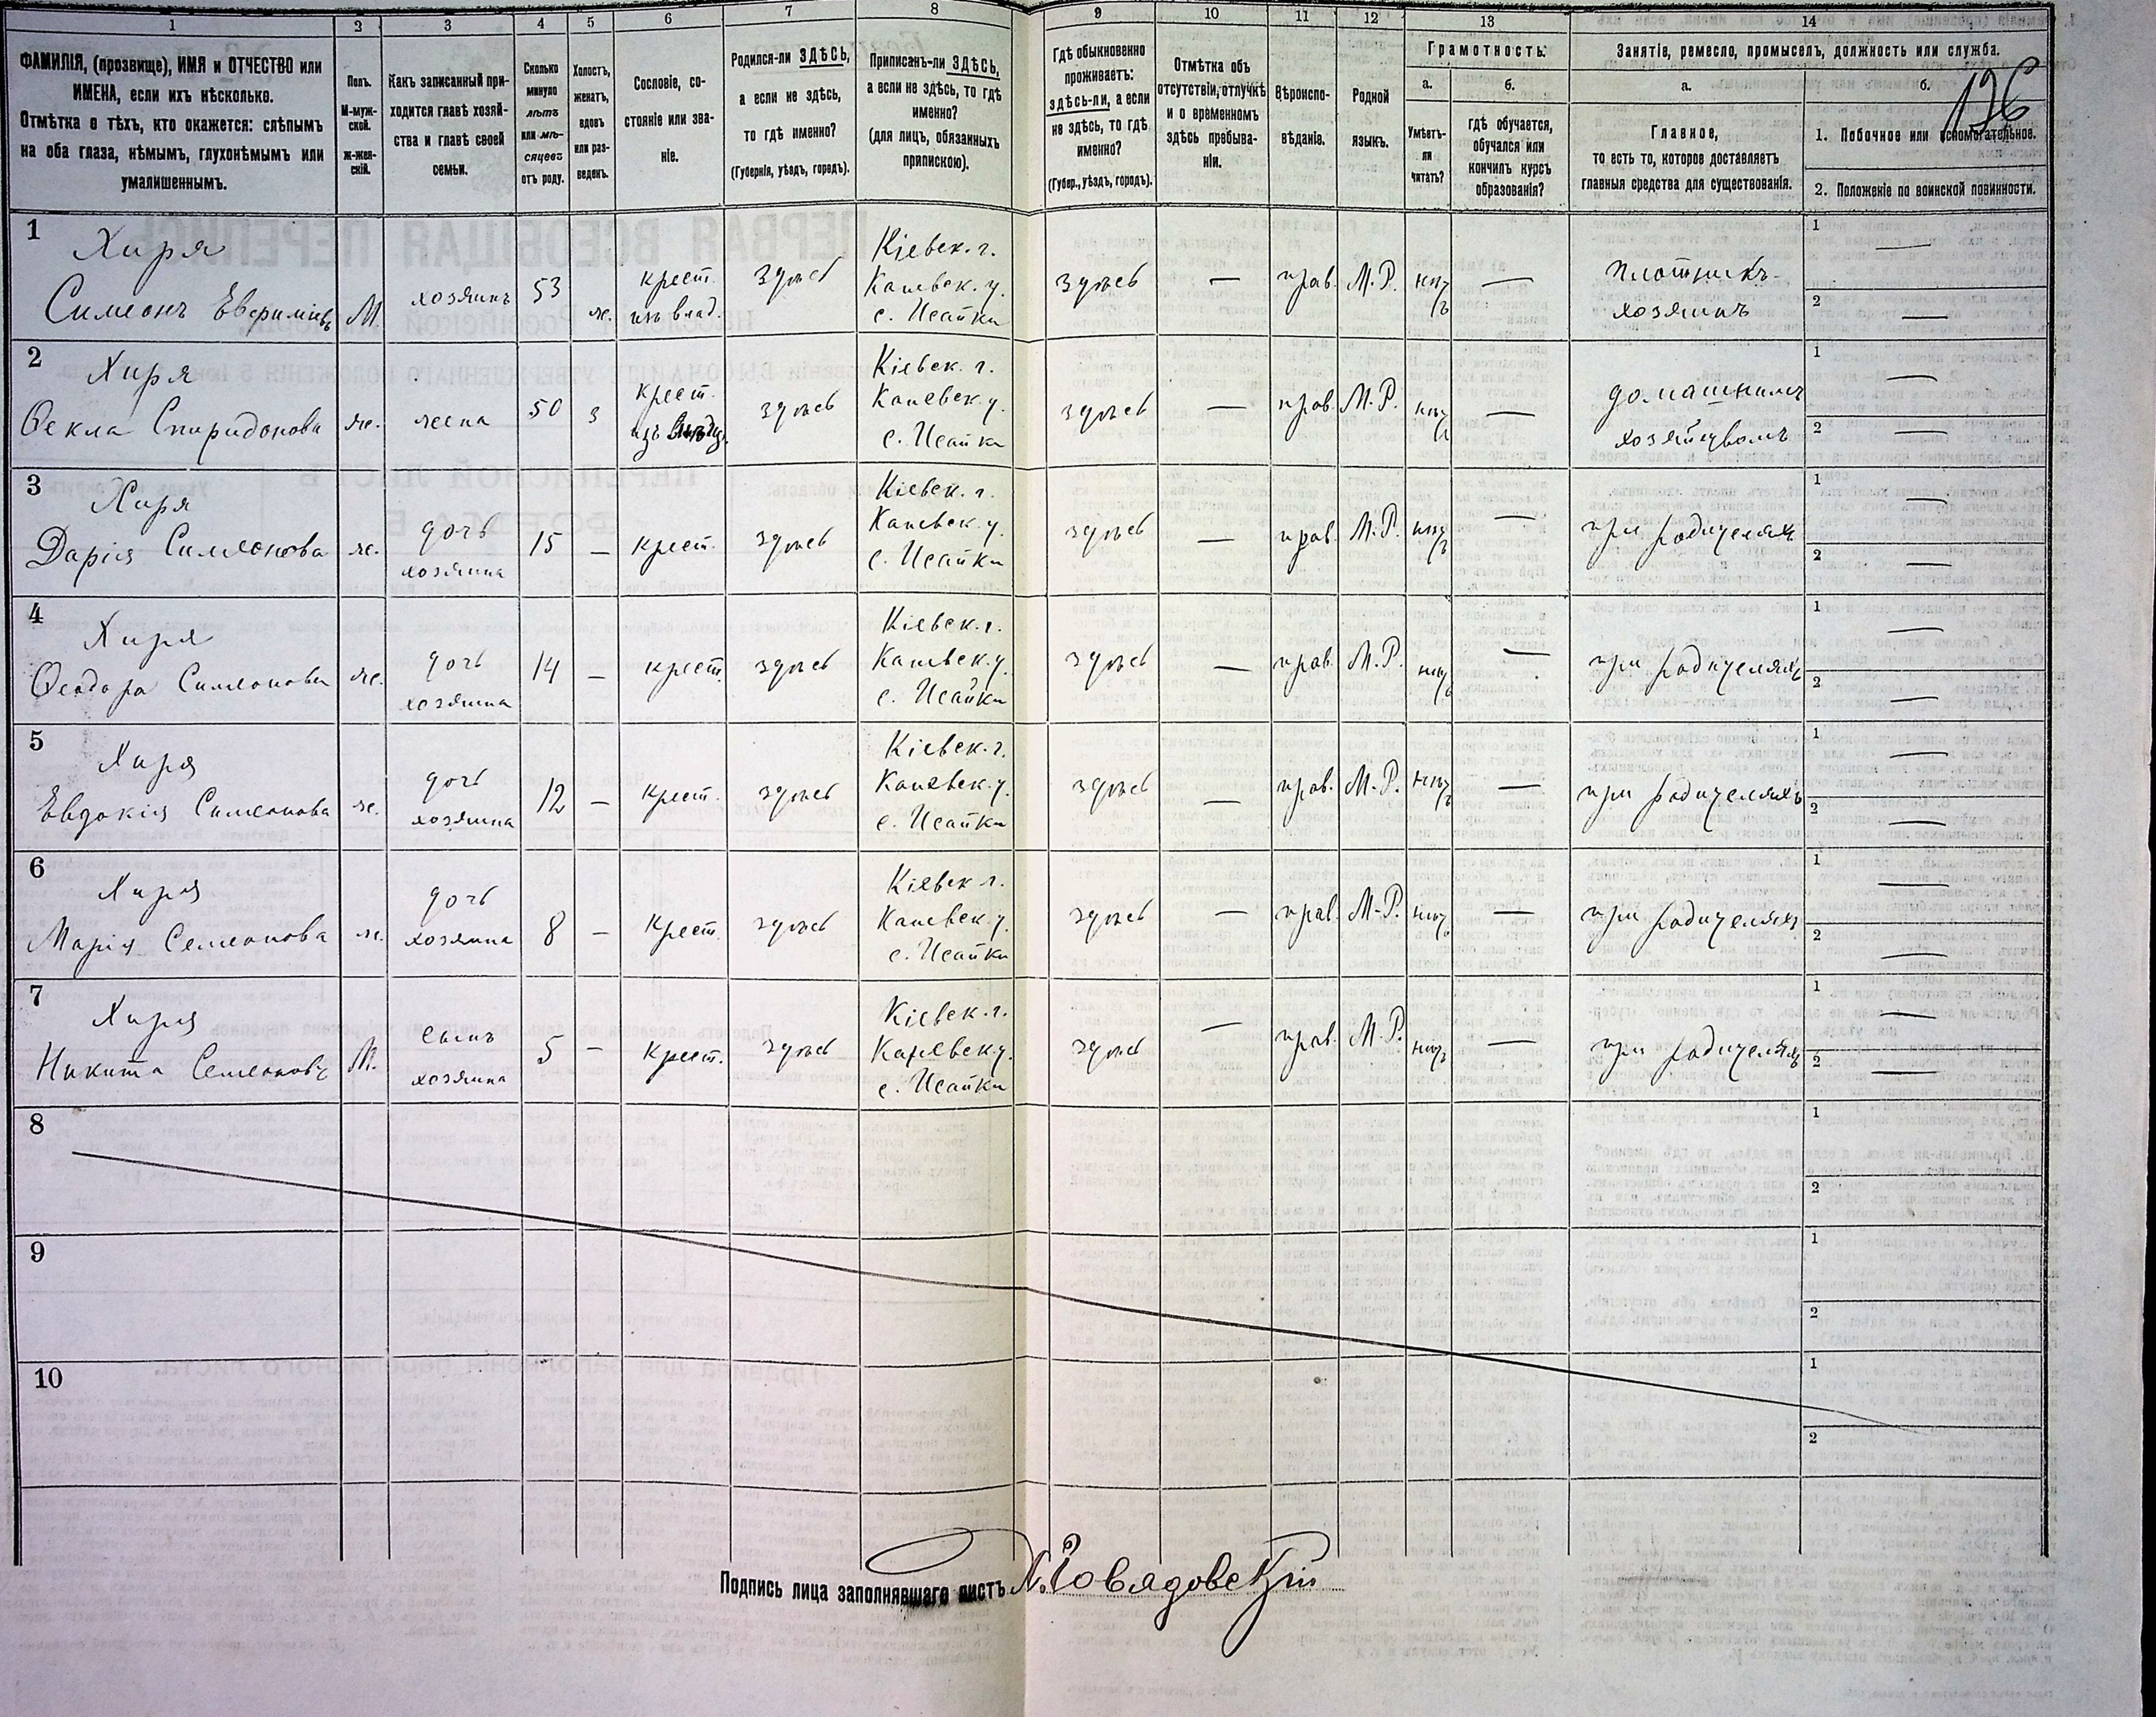 1 2 3 4 5 6 7 8 9 10 11 12 13 14
ФАМИЛІЯ, (прозвище), ИМЯ и ОТЧЕСТВО или
ИМЕНА, если ихъ нѣсколько.
Отмѣтка о тѣхъ, кто окажется: слѣпымъ
на оба глаза, нѣмымъ, глухонѣмымъ или
умалишеннымъ.
Полъ.
М-муж-
ской.
ж-жен-
скій.
Какъ записанный при-
ходится главѣ хозяй-
ства и главѣ своей
семьи.
Сколько
минуло
лѣтъ
или мѣ-
сяцевъ
отъ роду.
Холостъ,
женатъ,
вдовъ
или раз-
веденъ.
Сословіе, со-
стояніе или зва-
ніе.
Родился-ли ЗДѢСЬ,
а если не здѣсь,
то гдѣ именно?
(Губернія, уѣздъ, городъ).
Приписанъ-ли ЗДѢСЬ,
а если не здѣсь, то гдѣ
именно?
(для лицъ, обязанныхъ
припискою).
Гдѣ обыкновенно
проживаетъ:
здѣсь-ли, а если
не здѣсь, то гдѣ
именно?
(Губер., уѣздъ, городъ).
Отмѣтка объ
отсутствіи, отлучкѣ
и о временномъ
здѣсь пребыва-
ніи.
Вѣроиспо-
вѣданіе.
Родной
языкъ.
Грамотность.
а.
Умѣетъ-
ли
читать?
б.
гдѣ обучается,
обучался или
кончилъ курсъ
образованія?
Занятіе, ремесло, промыселъ, должность или служба.
а.
Главное,
то есть то, которое доставляетъ
главныя средства для существованія.
б.
126
1. Побочное или вспомогательное.
2. Положеніе по воинской повинности.
1
Хиря
Симеонъ
М.
хозяинъ
53
ж.
крест.
изъ влад.
здѣсь
Кіевск. г.
Каневск. у.
с. Исайки
здѣсь
—
прав.
М.Р.
нѣтъ
—
плотникъ-
хозяинъ
1 —
2 —
2
Хиря
Ѳекла Спиридонова
ж.
жена
50
з
крест.
изъ влад.
здѣсь
Кіевск. г.
Каневск. у.
с. Исайки
здѣсь
—
прав.
М.Р.
нѣтъ
—
домашнимъ
хозяйствомъ
1 —
2 —
3
Хиря
Дарія Симеонова
ж.
дочь
хозяина
15
—
крест.
здѣсь
Кіевск. г.
Каневск. у.
с. Исайки
здѣсь
—
прав.
М.Р.
нѣтъ
—
при родителяхъ
1 —
2 —
4
Хиря
Ѳеодора Симеонова
ж.
дочь
хозяина
14
—
крест.
здѣсь
Кіевск. г.
Каневск. у.
с. Исайки
здѣсь
—
прав.
М.Р.
нѣтъ
—
при родителяхъ
1 —
2 —
5
Хиря
Евдокія Симеонова
ж.
дочь
хозяина
12
—
крест.
здѣсь
Кіевск. г.
Каневск. у.
с. Исайки
здѣсь
—
прав.
М.Р.
нѣтъ
—
при родителяхъ
1 —
2 —
6
Хиря
Марія Семеонова
ж.
дочь
хозяина
8
—
крест.
здѣсь
Кіевск. г.
Каневск. у.
с. Исайки
здѣсь
—
прав.
М.Р.
нѣтъ
—
при родителяхъ
1 —
2 —
7
Хиря
Никита Семеоновъ
М.
сынъ
хозяина
5
—
крест.
здѣсь
Кіевск. г.
Каневск. у.
с. Исайки
здѣсь
—
прав.
М.Р.
нѣтъ
—
при родителяхъ
1 —
2 —
8
1
2
9
1
2
10
1
2
Подпись лица заполнявшаго листъ